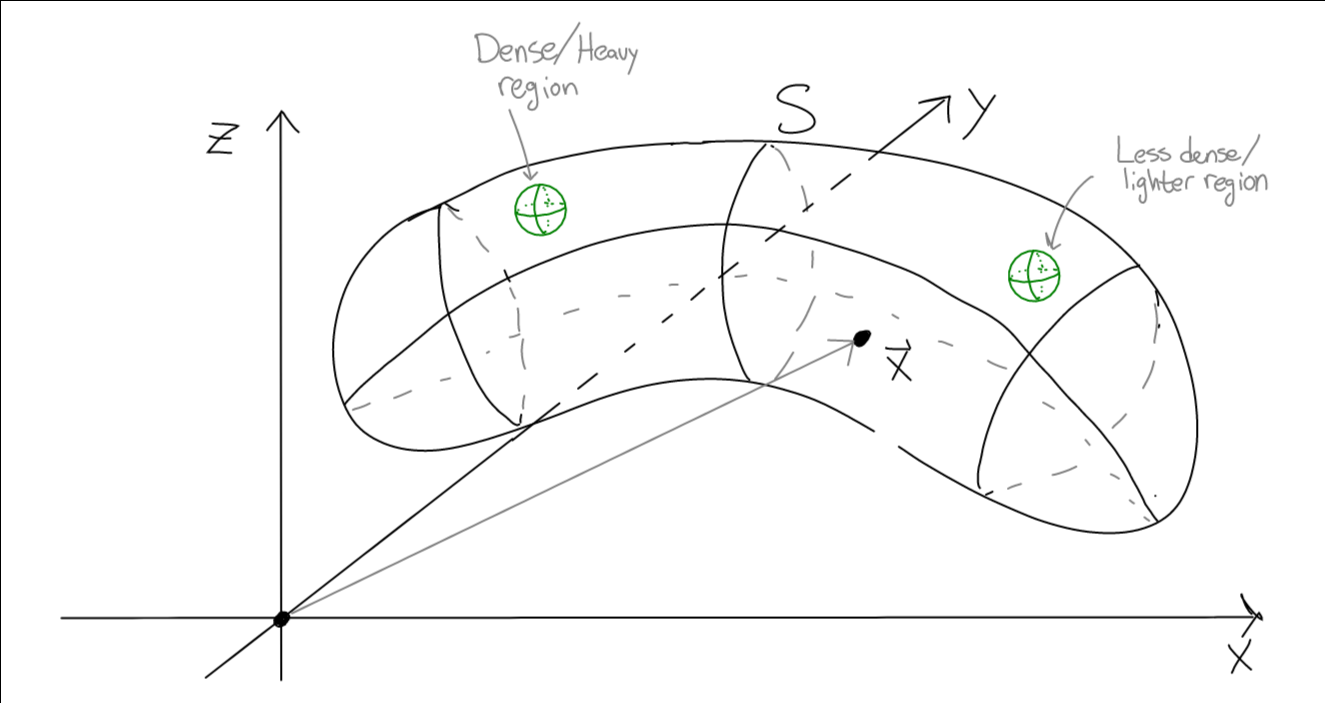 Dense/Heavy
region
S
y
Z
Less dense/
lighter region
x
x